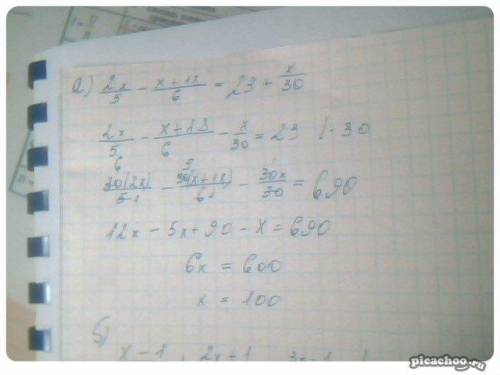 а) 2x/5 - x+18/6 = 23 + x/30
2x/5 - x+18/6 - x/30 = 23 |·30
30(2x)/5 - 30(x+18)/6 - 30x/30 = 690
6 5
1 1
12x - 5x + 90 - x = 690
6x = 600
x = 100
б)
x-1 2x+1 3x-1
picachoo.ru